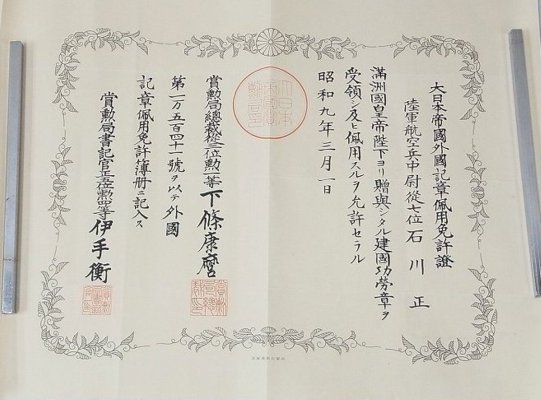 大日本帝國外國記章佩用免許證
陸軍航空兵中尉從七位石川正
滿洲國皇帝陛下ヨリ贈與シタル建國功勞章ヲ
受領シ及ヒ佩用スルヲ允許セラル
昭和九年三月一日
賞勲局總裁從三位勲一等下條康麿
第一万五百四十一號ヲ以テ外國
記章佩用免許簿册ニ記入ス
賞勲局書記官正五位勲四等伊手衡